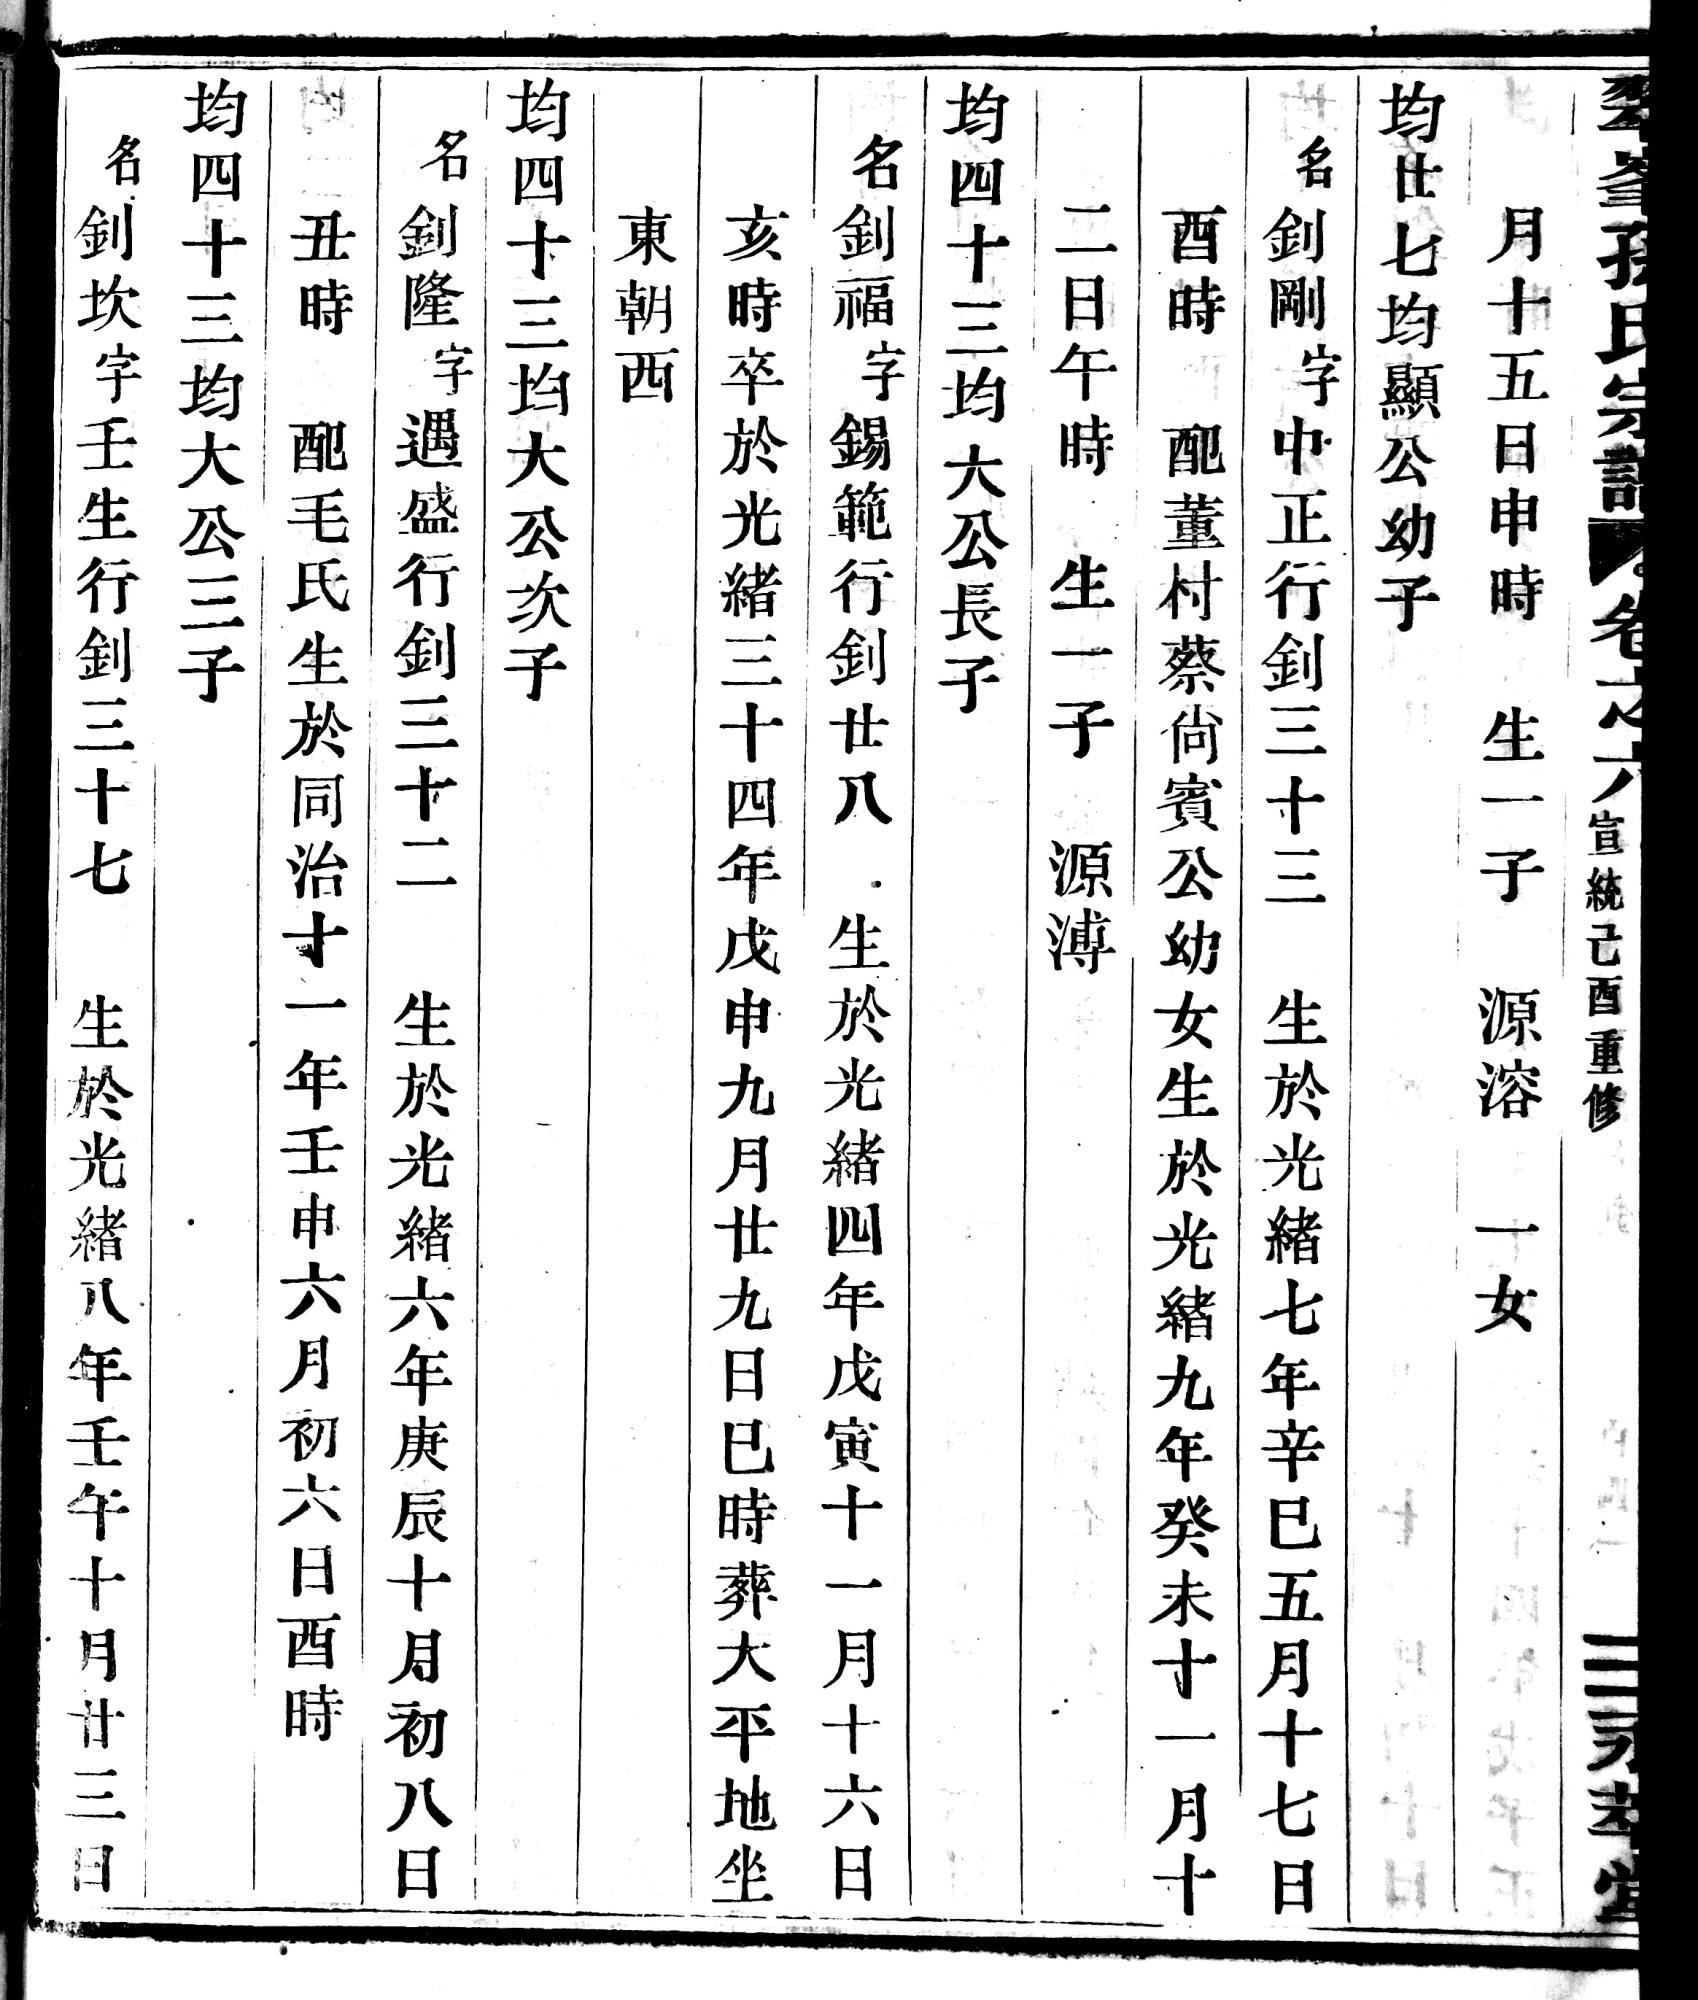 翠峯孫氏宗譜 卷之六 宣統己酉重修 二 永萃堂
月十五日申時 生一子 源溶 一女
均廿七均顯公幼子
名釗剛字中正行釗三十三 生於光緒七年辛巳五月十七日
酉時 配董村蔡尙賓公幼女生於光緒九年癸未十一月十
二日午時 生一子 源溥
均四十三均大公長子
名釗福字錫範行釗廿八 生於光緒四年戊寅十一月十六日
亥時卒於光緒三十四年戊申九月廿九日巳時葬大平地坐
東朝西
均四十三均大公次子
名釗隆字遇盛行釗三十二 生於光緒六年庚辰十月初八日
丑時 配毛氏生於同治十一年壬申六月初六日酉時
均四十三均大公三子
名釗坎字壬生行釗三十七 生於光緒八年壬午十月廿三日